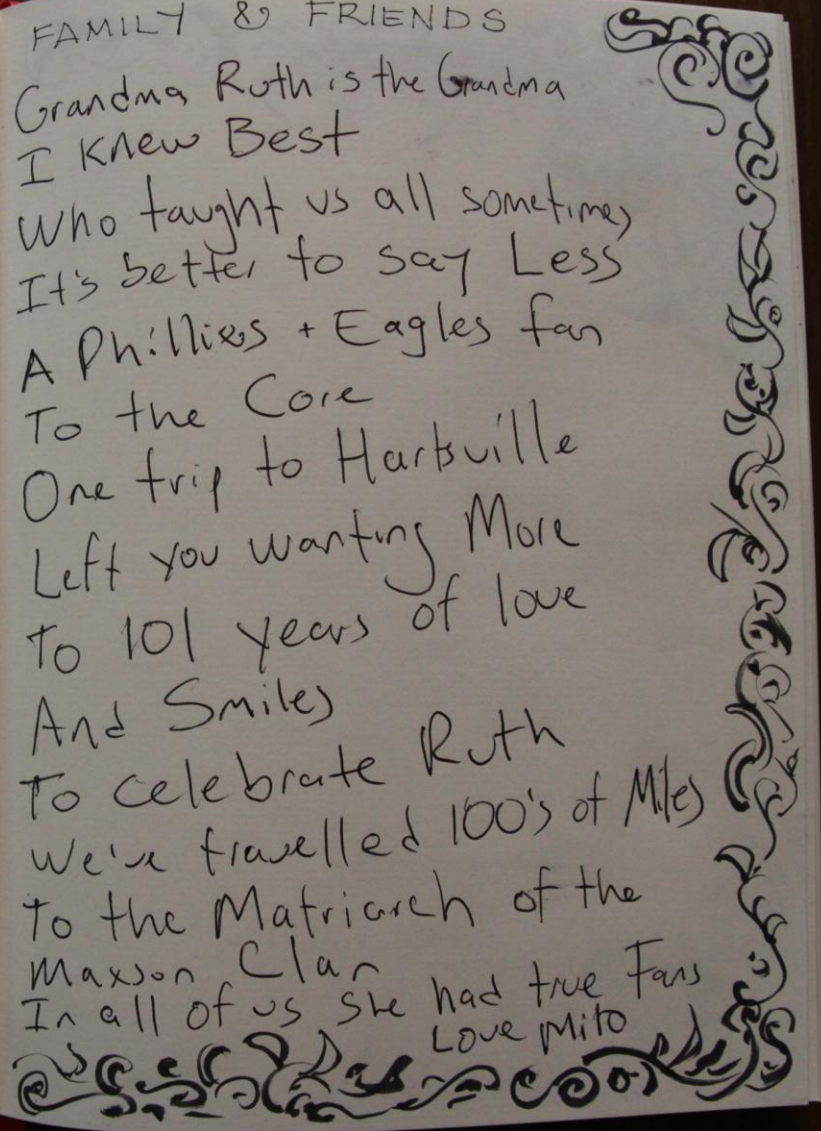 FAMILY & FRIENDS
Grandma Ruth is the Grandma
I Knew Best
Who taught us all sometimes
It's better to say Less
A Phillies + Eagles fan
To the Core
One trip to Hartsville
Left you wanting More
To 101 years of love
And Smiles
To celebrate Ruth
We've travelled 100's of Miles
To the Matriarch of the
Maxson Clan
In all of us she had true Fans
Love Mito